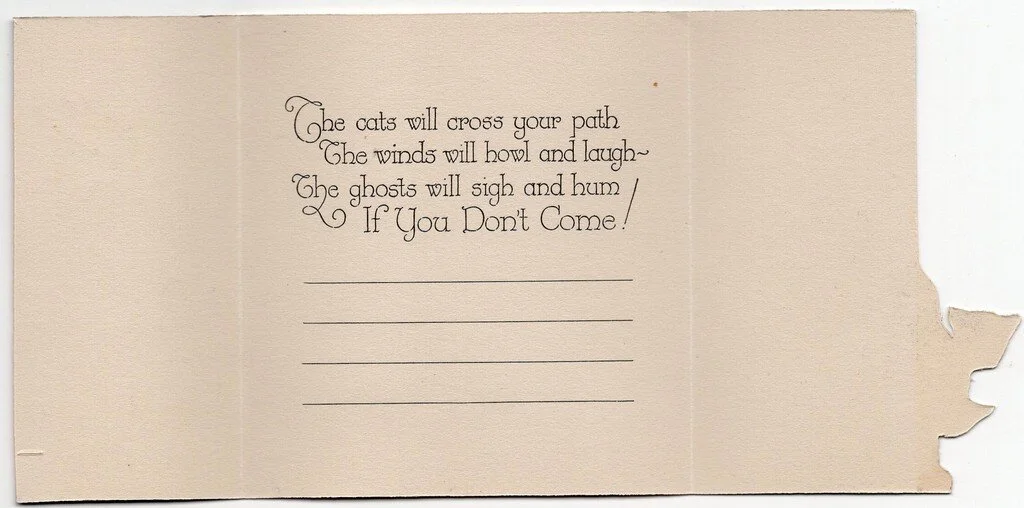 The cats will cross your path
The winds will howl and laugh~
The ghosts will sigh and hum
If You Don't Come!